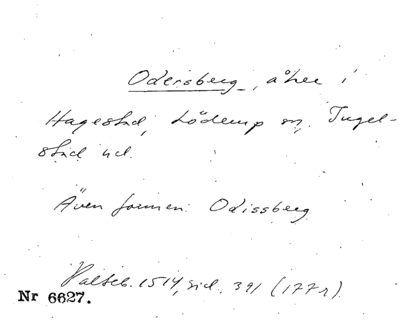 Odersberg, åker i
Hagestad, Löderup sn, Ingel-
stad hd.
Även formen: Odissberg
Palteb. 1514, sid. 391 (177r).
Nr 6627.